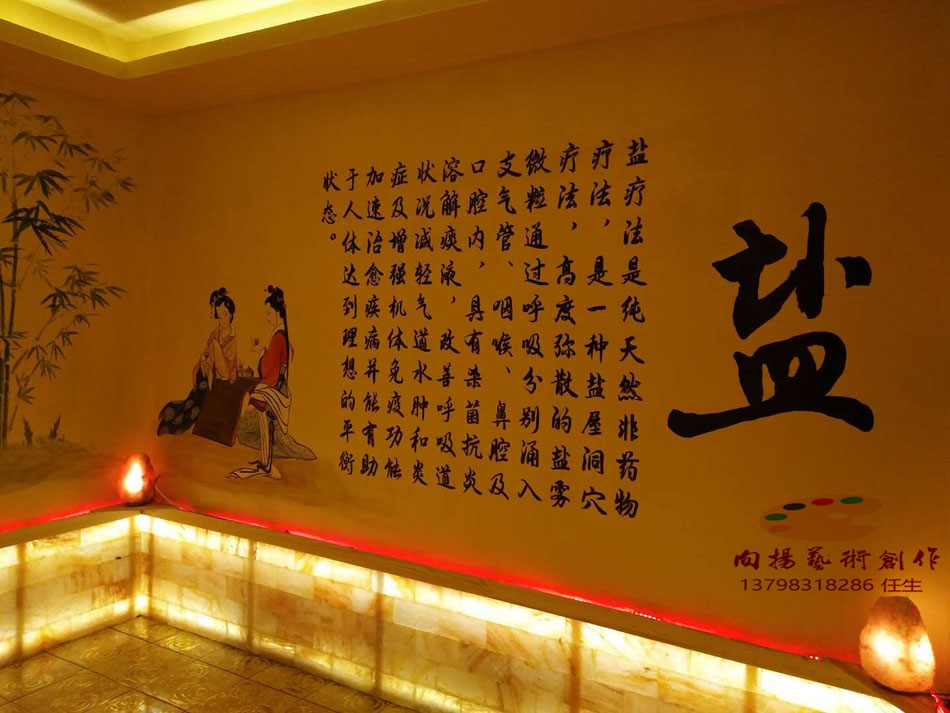 盐
盐疗法是纯天然非药物
疗法，是一种盐屋洞穴
疗法，高度弥散的盐雾
微粒通过呼吸分别涌入
支气管、咽喉、鼻腔及
口腔内，具有杀菌抗炎
溶解痰液，改善呼吸道
状况减轻气道水肿和炎
症及增强机体免疫功能
加速治愈疾病并能有助
于人体达到理想的平衡
状态。
向揚藝術創作
13798318286 任生